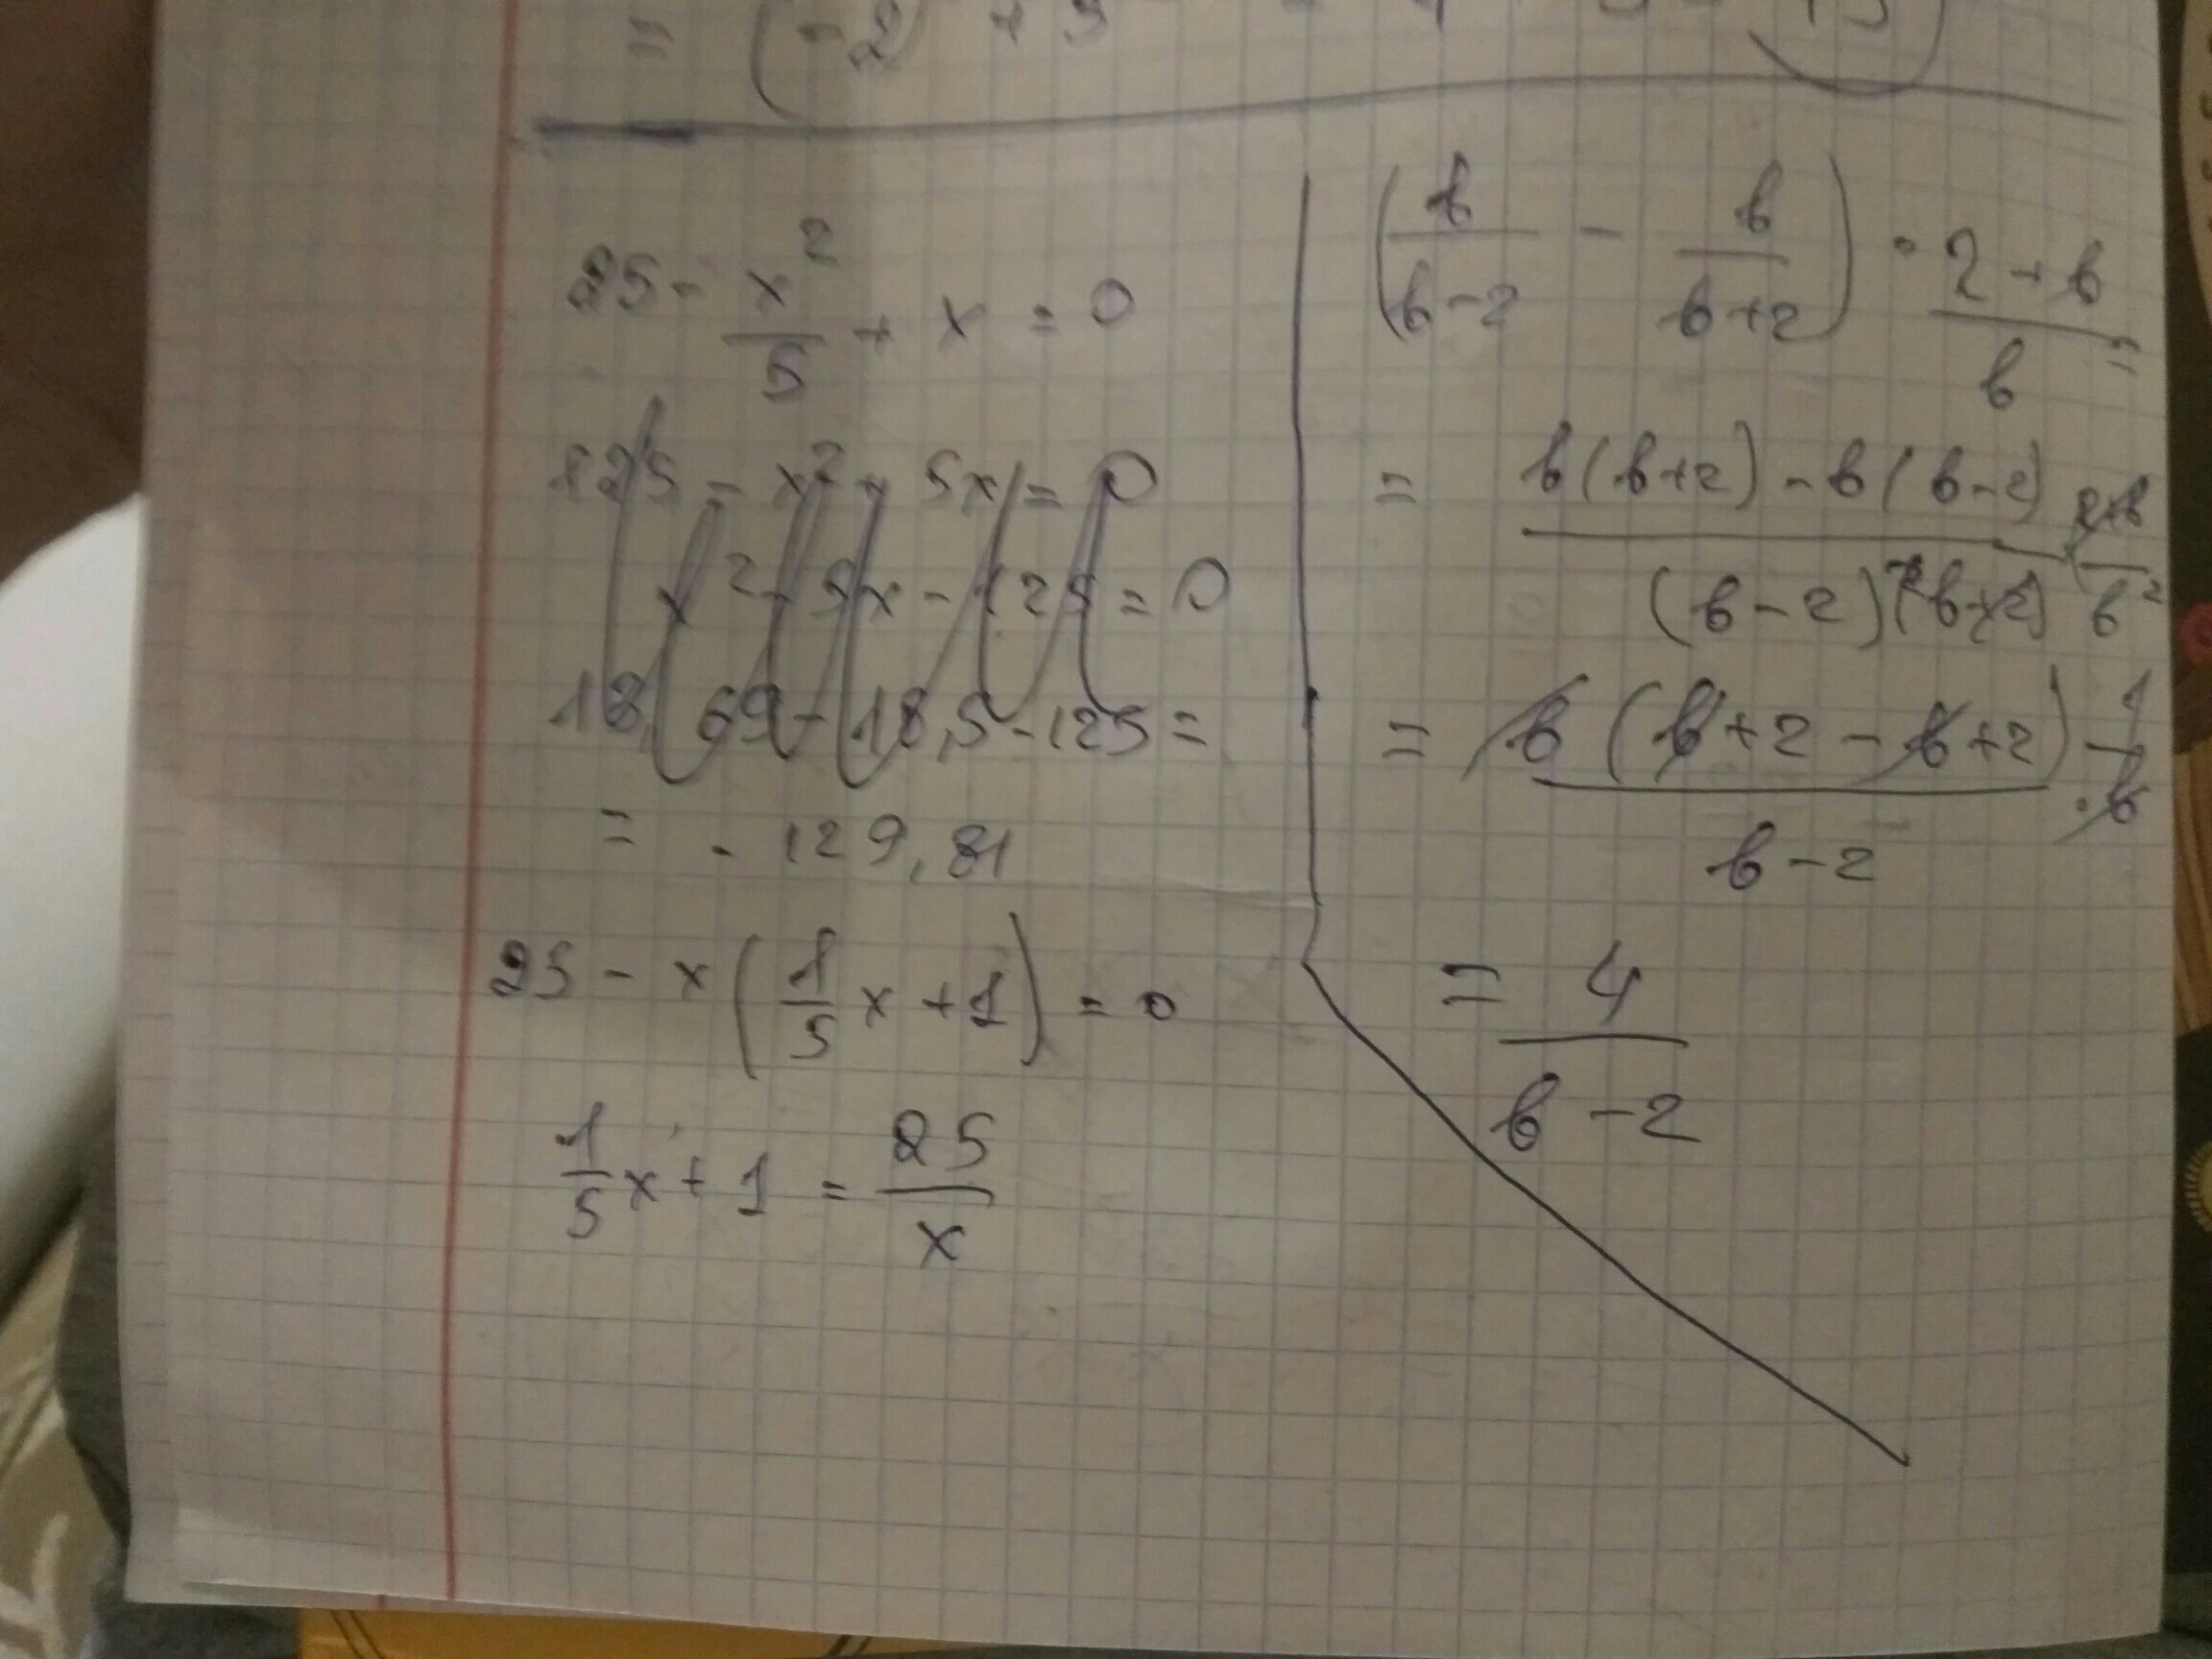 25 - x²/5 + x = 0
125 - x² + 5x = 0
x² - 5x - 125 = 0
18,69 - 18,5 - 125 =
= - 129,81
25 - x (1/5 x + 1) = 0
1/5 x + 1 = 25/x
(b/(b-2) - b/(b+2)) · (2+b)/b =
= (b(b+2) - b(b-2))/((b-2)(b+2)) · (2+b)/b =
= b(b+2-b+2)/(b-2) · 1/b
= 4/(b-2)